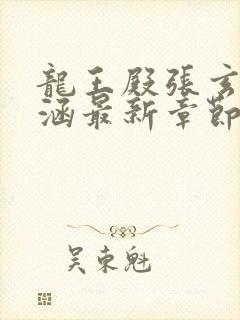 龍王殿張玄
涵最新章節
吳東魁